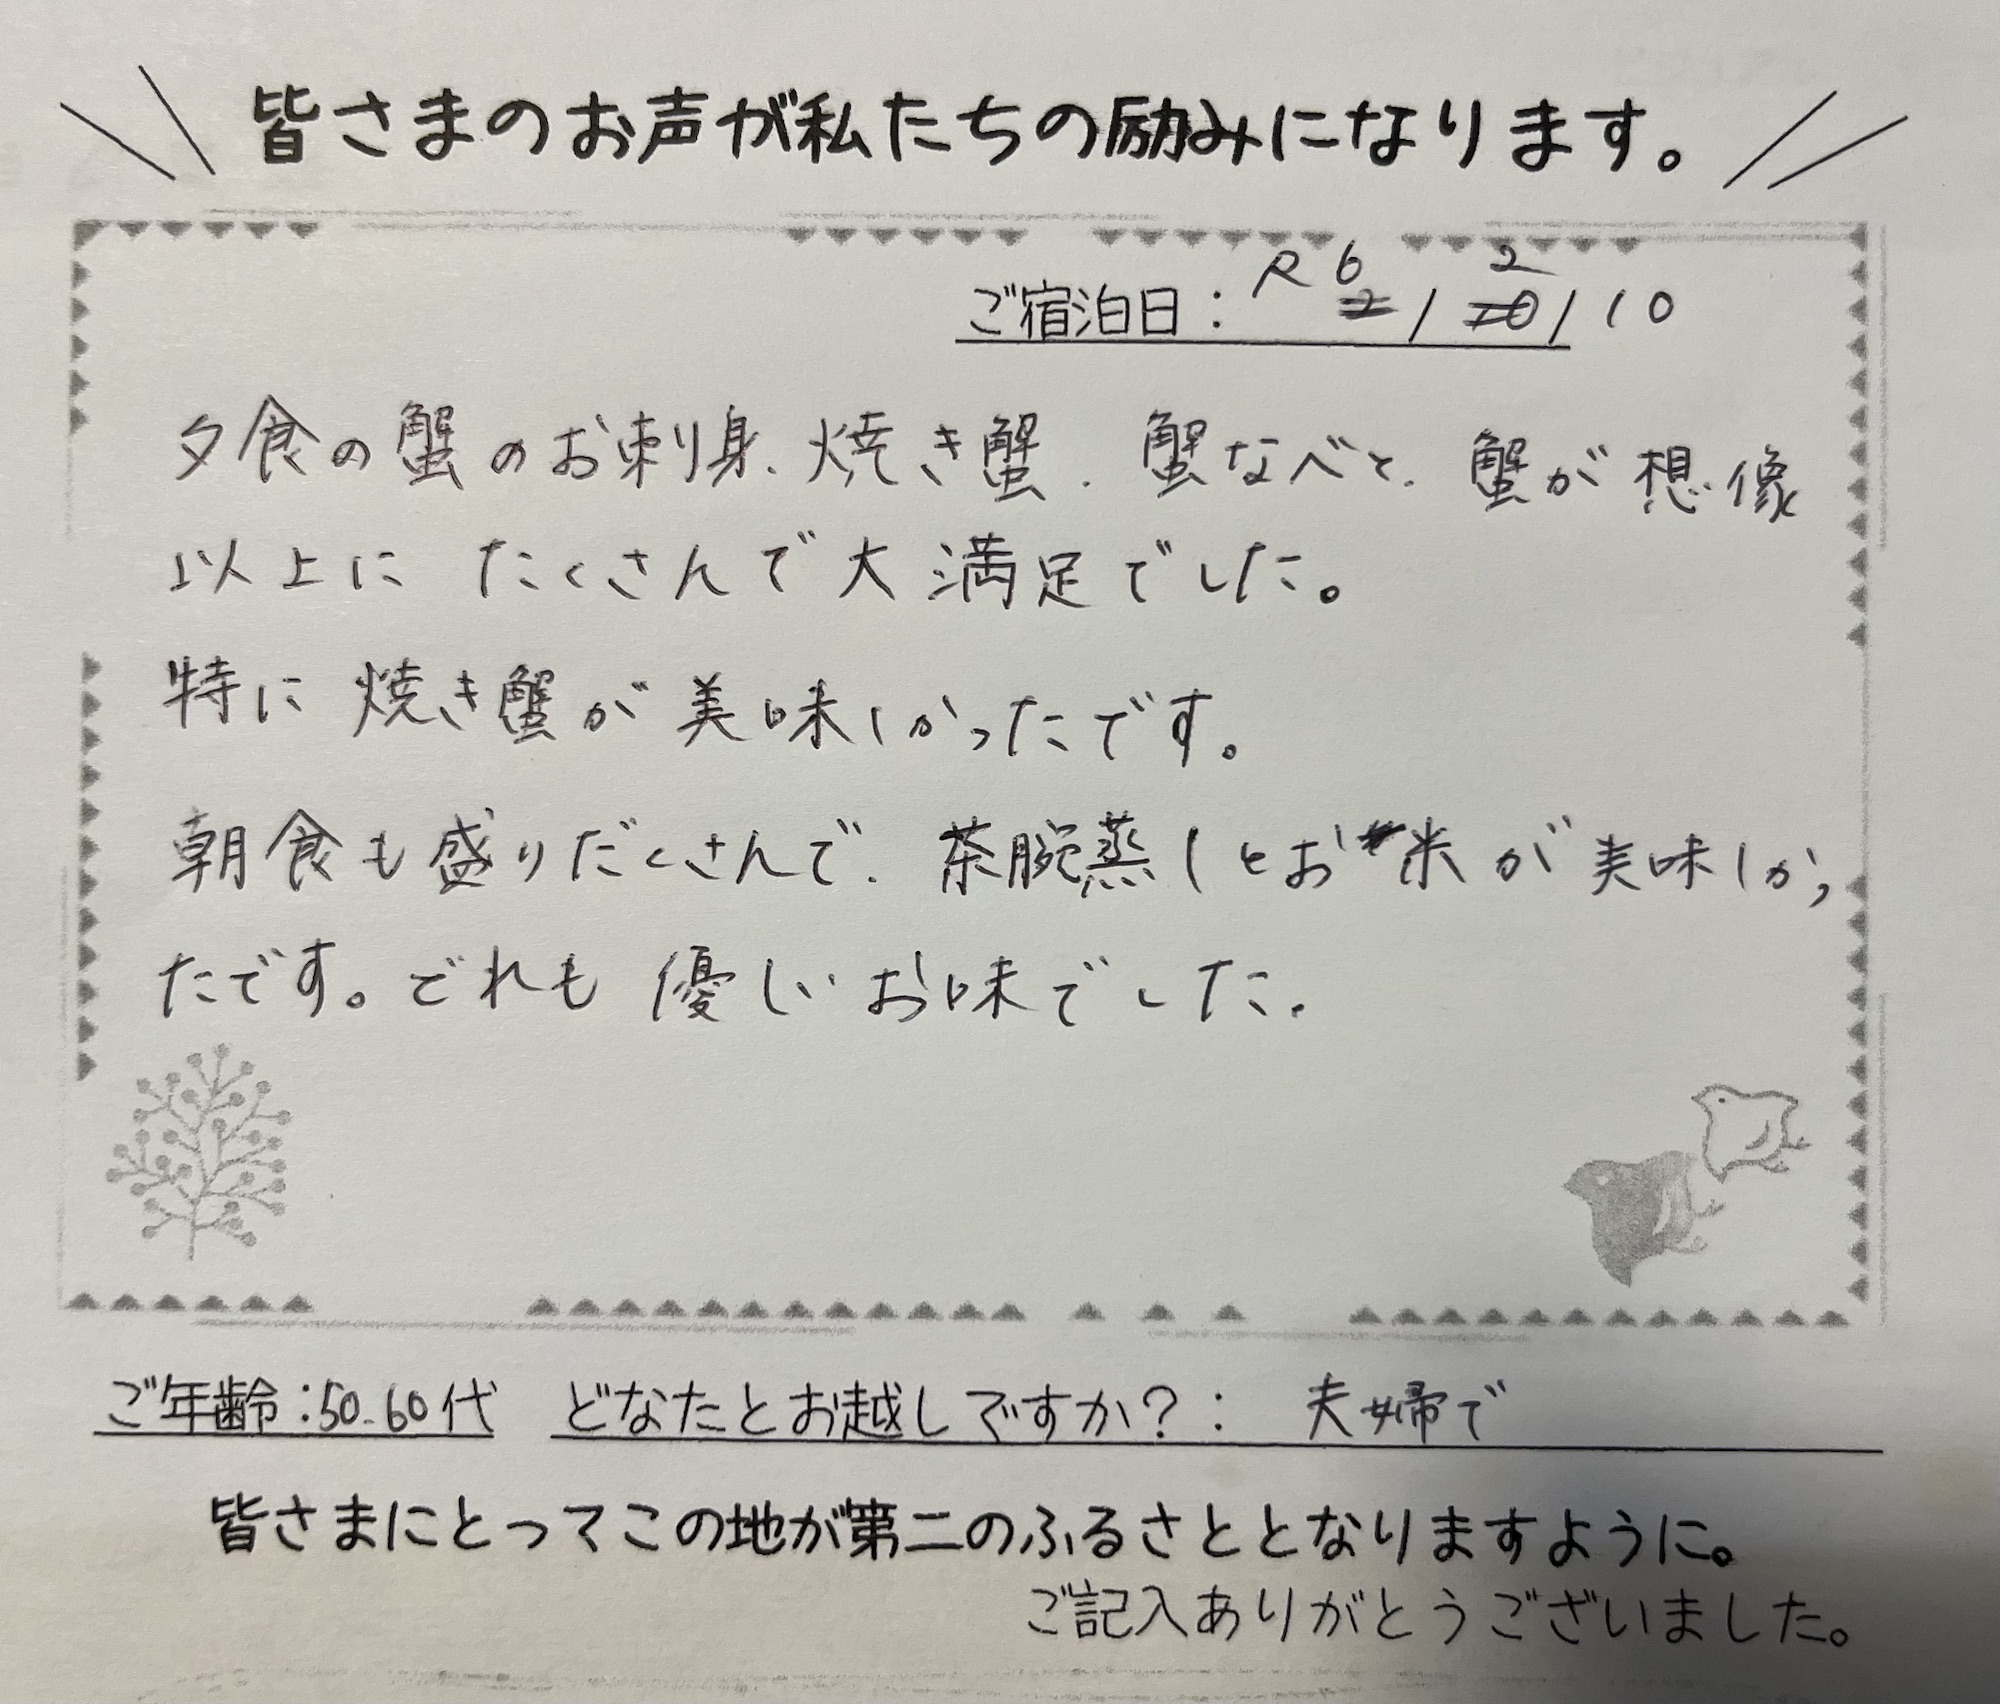 皆さまのお声が私たちの励みになります。
ご宿泊日：R 6 / 2 / 10
夕食の蟹のお刺身、焼き蟹、蟹なべと、蟹が想像
以上に たくさんで大満足でした。
特に 焼き蟹が美味しかったです。
朝食も盛りだくさんで、茶腕蒸しとお米が美味しかっ
たです。どれも 優しいお味でした。
ご年齢：50-60代 どなたとお越しですか？： 夫婦で
皆さまにとってこの地が第二のふるさととなりますように。
ご記入ありがとうございました。